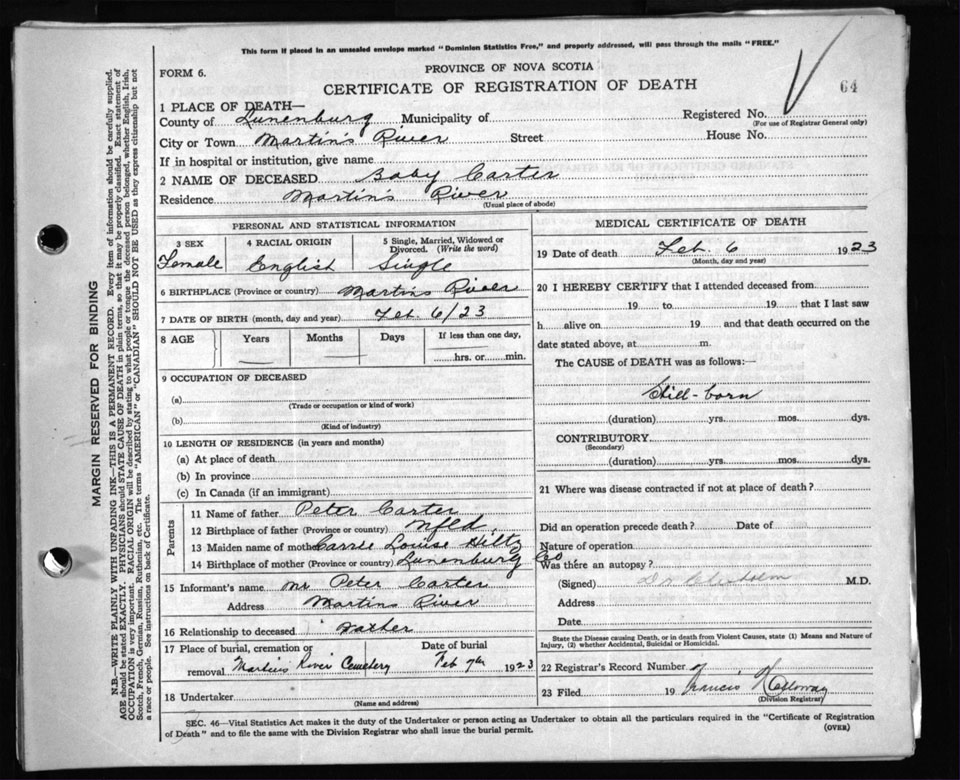 This form if placed in an unsealed envelope marked "Dominion Statistics Free," and properly addressed, will pass through the mails "FREE."
FORM 6.
PROVINCE OF NOVA SCOTIA
CERTIFICATE OF REGISTRATION OF DEATH
64
1 PLACE OF DEATH—
County of Lunenburg Municipality of Registered No.
(For use of Registrar General only)
City or Town Martin's River Street House No.
If in hospital or institution, give name
2 NAME OF DECEASED Baby Carter
Residence Martin's River
(Usual place of abode)
PERSONAL AND STATISTICAL INFORMATION
3 SEX 4 RACIAL ORIGIN 5 Single, Married, Widowed or Divorced. (Write the word)
Female English Single
6 BIRTHPLACE (Province or country) Martins River
7 DATE OF BIRTH (month, day and year) Feb. 6/23
8 AGE Years Months Days If less than one day,
hrs. or min.
9 OCCUPATION OF DECEASED
(a)
(Trade or occupation or kind of work)
(b)
(Kind of industry)
10 LENGTH OF RESIDENCE (in years and months)
(a) At place of death
(b) In province
(c) In Canada (if an immigrant)
Parents
11 Name of father Peter Carter
12 Birthplace of father (Province or country) Nfld.
13 Maiden name of mother Carrie Louise Hiltz
14 Birthplace of mother (Province or country) Lunenburg Co
15 Informant's name Mr Peter Carter
Address Martins River
16 Relationship to deceased Father
17 Place of burial, cremation or removal Martins River Cemetery Date of burial Feb 7th 1923
18 Undertaker
(Name and address)
MEDICAL CERTIFICATE OF DEATH
19 Date of death Feb. 6 1923
(Month, day and year)
20 I HEREBY CERTIFY that I attended deceased from
19 to 19 that I last saw
h alive on 19 and that death occurred on the
date stated above, at m.
The CAUSE of DEATH was as follows:—
Still-born
(duration) yrs. mos. dys.
CONTRIBUTORY
(Secondary)
(duration) yrs. mos. dys.
21 Where was disease contracted if not at place of death?
Did an operation precede death? Date of
Nature of operation
Was there an autopsy?
(Signed) M.D.
Address
Date
State the Disease causing Death, or in death from Violent Causes, state (1) Means and Nature of Injury, (2) whether Accidental, Suicidal or Homicidal.
22 Registrar's Record Number
23 Filed 19 Francis
(Division Registrar)
SEC. 46—Vital Statistics Act makes it the duty of the Undertaker or person acting as Undertaker to obtain all the particulars required in the "Certificate of Registration
of Death" and to file the same with the Division Registrar who shall issue the burial permit.
(OVER)
MARGIN RESERVED FOR BINDING
N.B.—WRITE PLAINLY WITH UNFADING INK—THIS IS A PERMANENT RECORD. Every item of information should be carefully supplied.
AGE should be stated EXACTLY. PHYSICIANS should STATE CAUSE OF DEATH in plain terms, so that it may be properly classified. Exact statement of
OCCUPATION is very important. RACIAL ORIGIN will be described by stating to what people or tongue the deceased person belonged, whether English, Irish,
Scotch, French, German, Russian, Ruthenian, etc. The terms "AMERICAN" or "CANADIAN" SHOULD NOT BE USED as they express citizenship but not
a race or people. See instructions on back of Certificate.